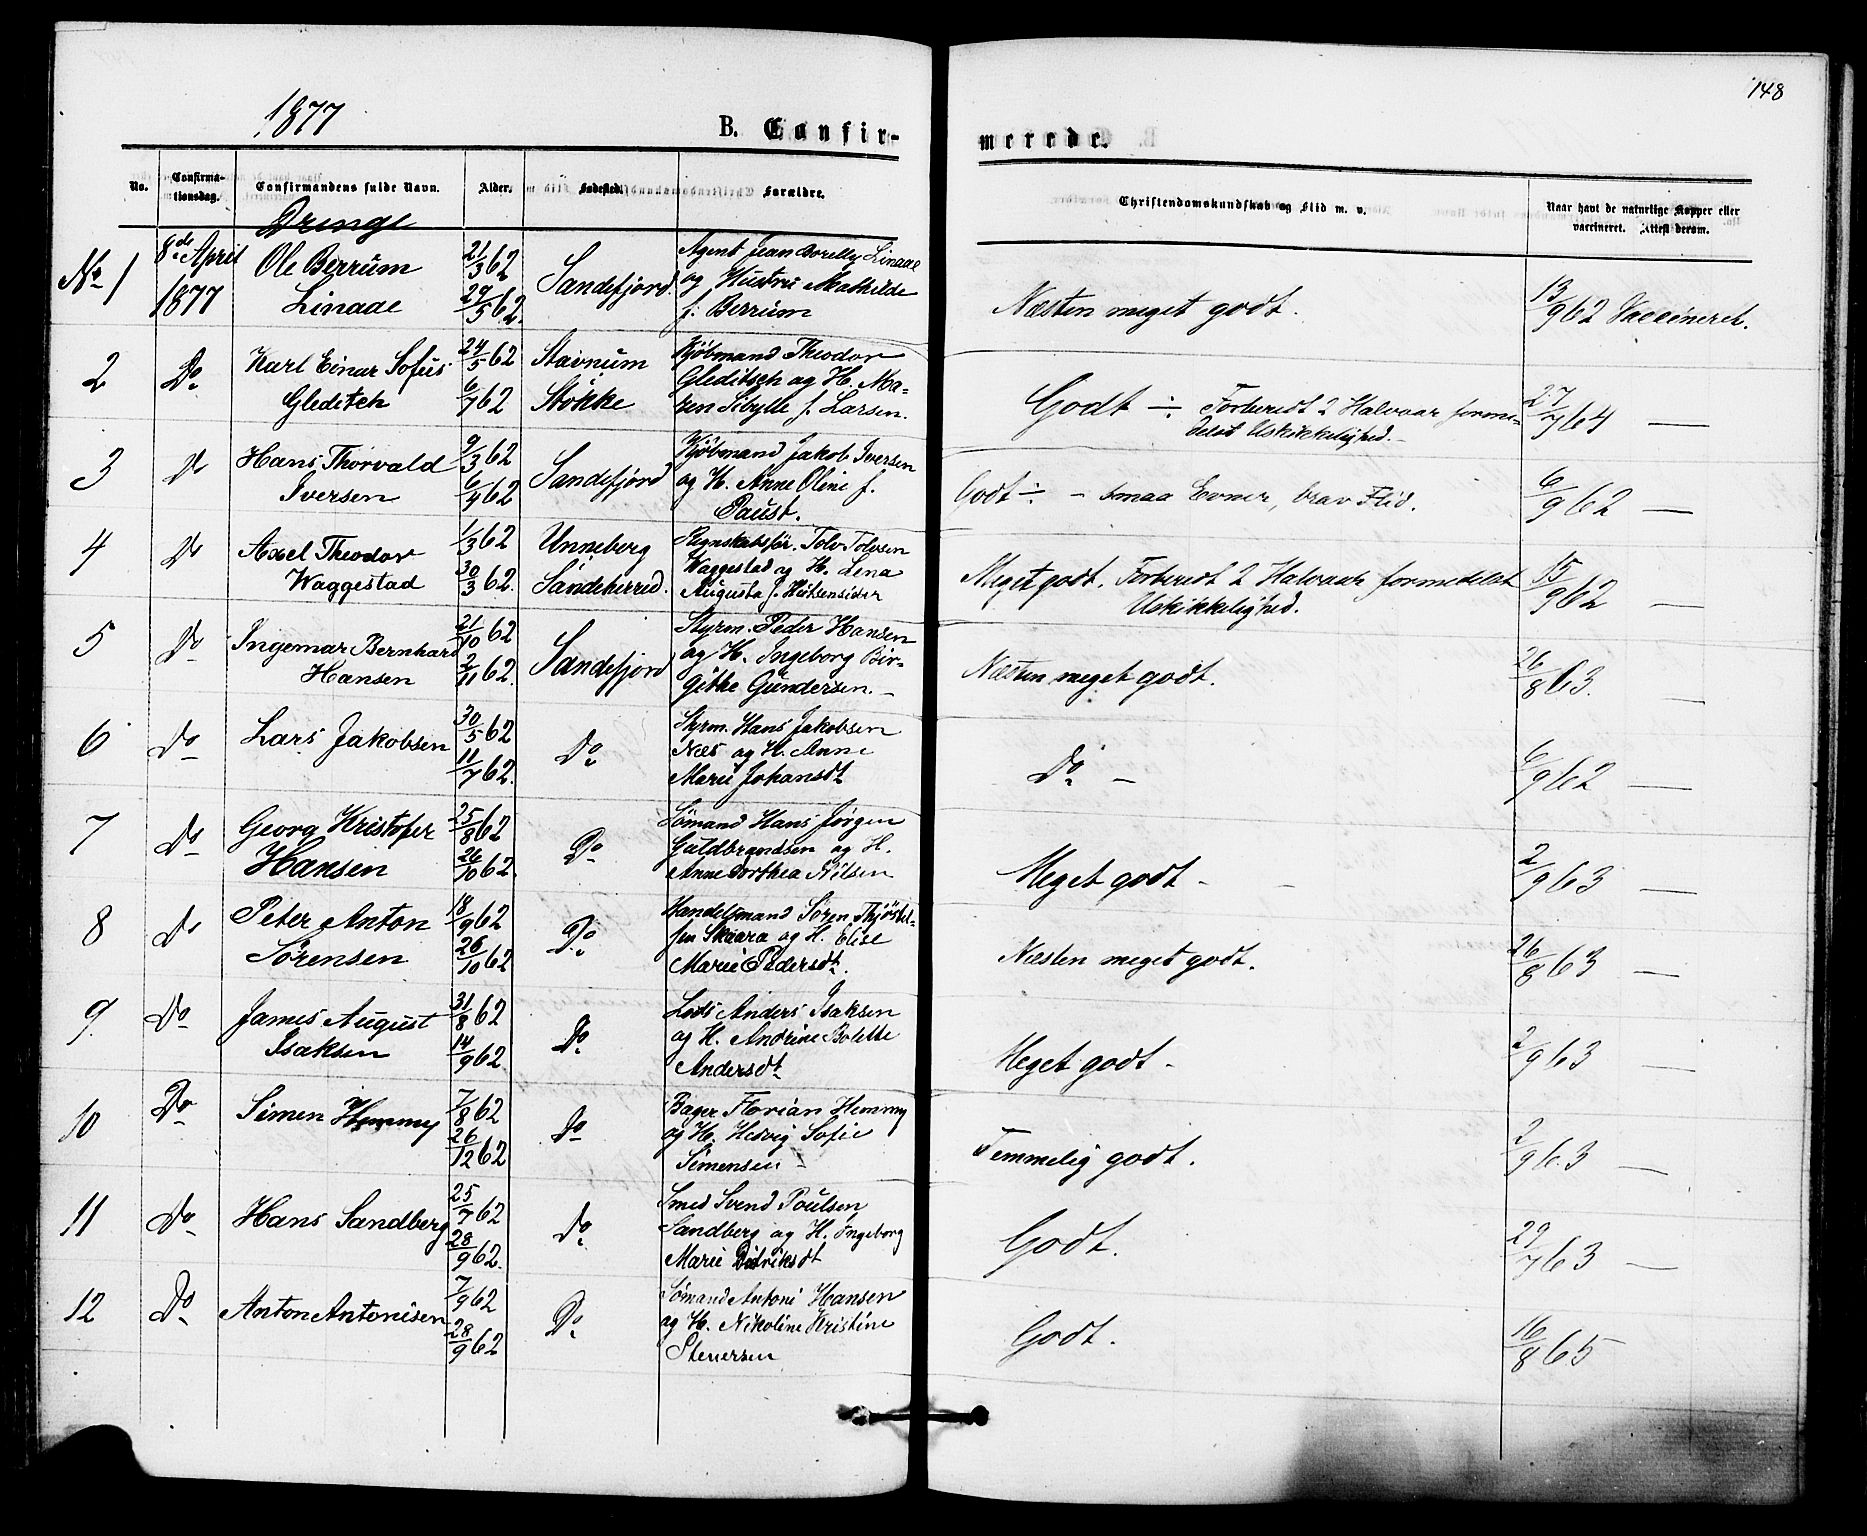 148
1877
B. Confirmerede.
No. Confirmationsdag. Confirmandens fulde Navn. Alder. Fødested. Forældre. Christendomskundskab og Flid m. v. Naar havt de naturlige Kopper eller vaccineret. Attest derom.
Drenge
No 1 8de April 1877 Ole Berrum Linaae 21/3 62 29/5 62. Sandefjord. Agent Jean Borelly Linaae og Hustru Mathilde f. Berrum Næsten meget godt. 13/9 62 Vaccineret.
2 Do Karl Einar Sofus Gleditsch 24/5 62 6/7 62 Stavnum Stokke Kjøbmand Theodor Gleditsch og H. Maren Sibylle f. Larsen. Godt ÷ Forberedt 2 Halvaar formedelst Uskikkelighed. 27/7 64 —
3 Do Hans Thorvald Iversen 9/3 62 6/4 62 Sandefjord Kjøbmand Jakob Iversen og H. Anne Oline f. Paust. Godt ÷ - smaa Evner, brav Flid. 6/9 62 —
4 Do Axel Theodor Waggestad 1/3 62 30/3 62. Unneberg Sandeherred. Regnskabsfør. Tolv Tolvsen Waggestad og H. Lena Augusta f. Meget godt. Forberedt 2 Halvaar formedelst Uskikkelighed. 15/9 62 —
5 Do Ingemar Bernhard Hansen 21/10 62 2/11 62. Sandefjord Styrm. Peder Hansen og H. Ingeborg Birgithe Gundersen. — Næsten meget godt. 26/8 63. —
6 Do Lars Jakobsen 30/5 62 11/7 62. Do Styrm. Hans Jakobsen Næs og H. Anne Marie Johansdt Do — 6/9 62 —
7 Do Georg Kristofer Hansen 25/8 62 26/10 62. Do Sømand Hans Jørgen Guldbrandsen og H. Anne Dorthea Nilsen Meget godt - 2/9 63 —
8 Do Peter Anton Sørensen 18/9 62 26/10 62 Do Handelsmand Søren Skaara og H. Elise Marie Pedersdt. Næsten meget godt. 26/8 63 —
9 Do James August Isaksen 31/8 62 14/9 62. Do Lods Anders Isaksen og H. Andrine Bolette Andersdt Meget godt - 2/9 63 —
10 Do Simen Hemmy 7/8 62 26/12 62 Do Bager Florian Hemmy og H. Hedvig Sofie Simensen — Temmelig godt. 2/9 63 —
11 Do Hans Sandberg 25/7 62 28/9 62. Do Smed Svend Poulsen Sandberg og H. Ingeborg Marie Didriksdt Godt. 29/7 63 —
12 Do Anton Antonisen 7/9 62 28/9 62 Do Sømand Antoni Hansen og H. Nikoline Kristine Stenersen Godt. 16/8 65